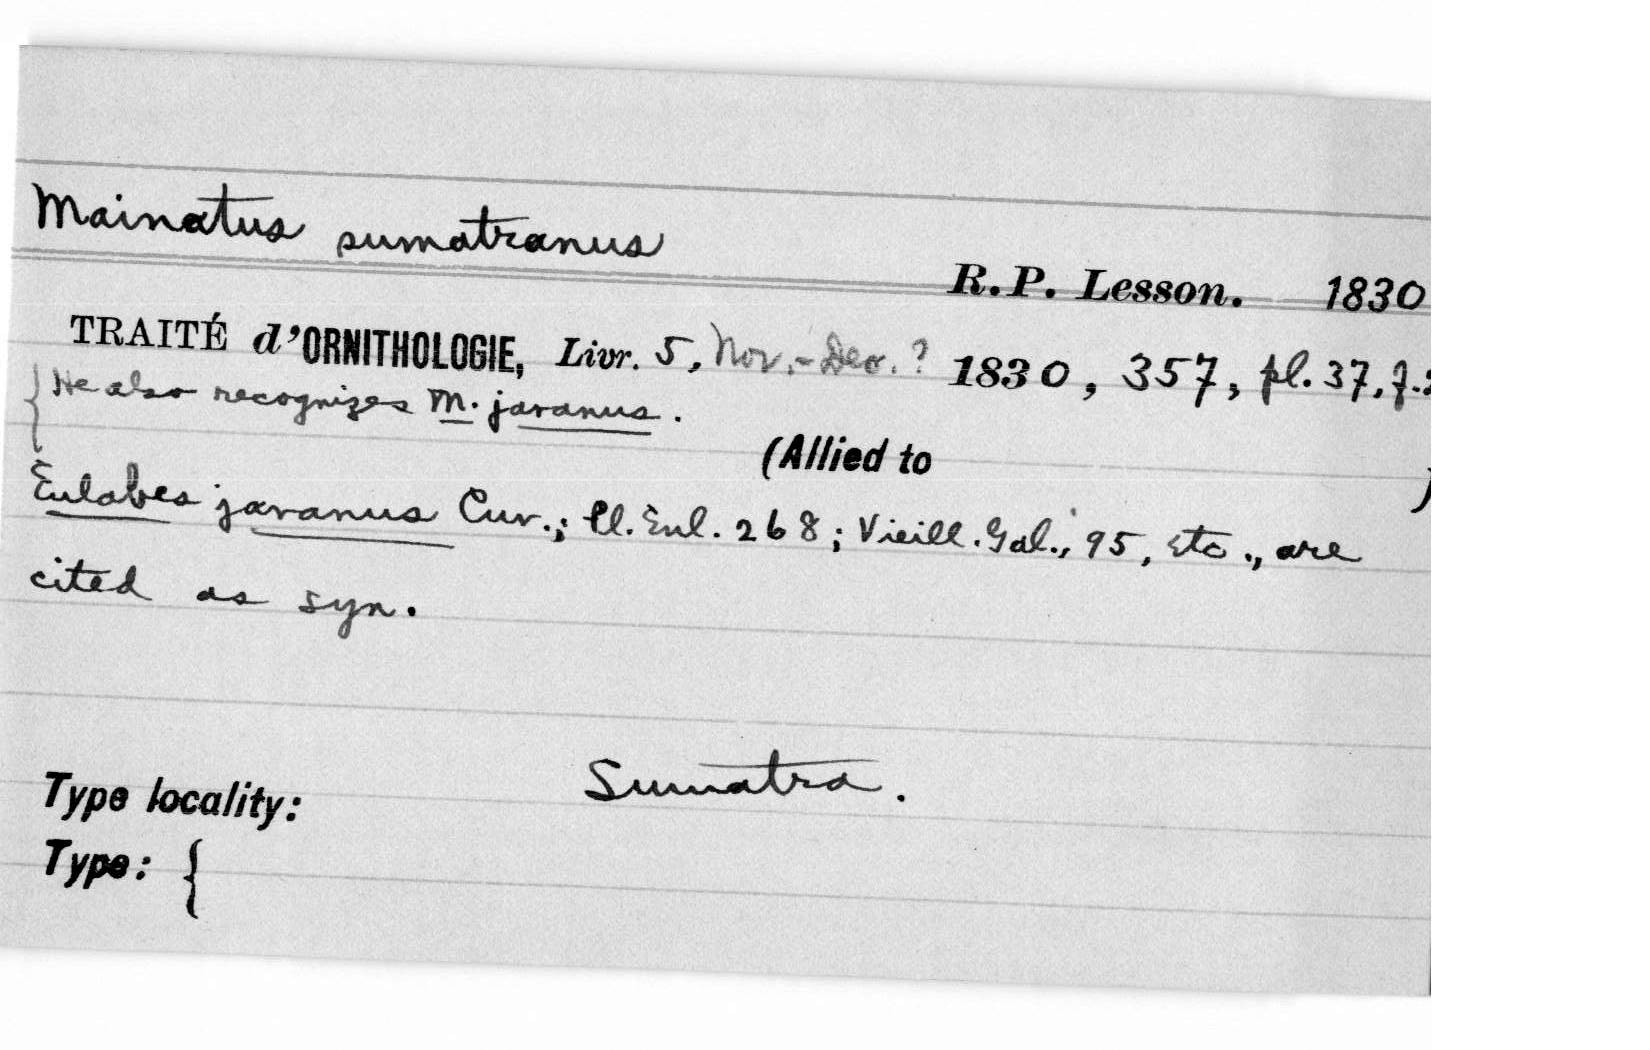 Mainatus sumatranus
R.P. Lesson. 1830
TRAITÉ d'ORNITHOLOGIE, Livr. 5, Nov.-Dec.? 1830, 357, pl. 37, f.
{He also recognizes M. javanus.
(Allied to )
Eulabes javanus Cuv.; Pl. Enl. 268; Vieill. Gal., 95, etc., are
cited as syn.
Type locality: Sumatra.
Type: {